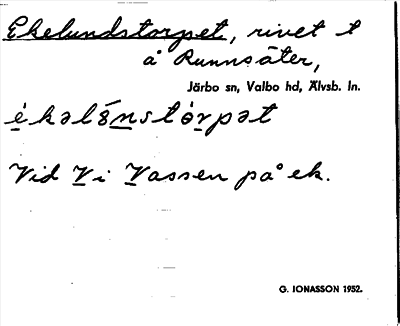 Ekelundstorpet, rivet t
å Runnsäter,
Järbo sn, Valbo hd, Älvsb. ln.
Vid Vi Vassen på ek.
G. IONASSON 1952.